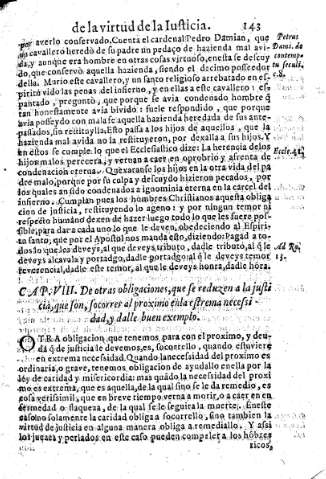 de la virtud de la Iusticia. 143
por averlo conservado. Cuenta el cardenal Pedro Damian, que
un cavallero heredò de su padre un pedaço de hazienda mal avi-
da, y aunque era hombre en otras cosas virtuoso, en esta se descuy
do, que conservò aquella hazienda, siendo el decimo possedor
della. Mario este cavallero, y un santo religioso arrebatado en es-
piritu vido las penas del infierno, y en ellas a este cavallero: es-
pantado, preguntò, que porque se avia condenado hombre q̃
tan honestamente avia bivido: fuele respondido, que porque
avia posseydo con mala fe aquella hazienda heredada de sus ante-
passados, sin restituylla. Esto passa a los hijos de aquellos, que la
hazienda mal avida no la restituyeron, por dexalla a sus hijos. Y
en estos se cumple lo que el Ecclesiastico dize: La herencia de los
hijos malos perecerá, y veran a caer en oprobrio y afrenta de
condenacion eterna. Quexaranse los hijos en la otra vida del pa
dre malo, porque por su culpa y descuydo hizieron pecados, por
los quales an sido condenados a ignominia eterna en la carcel del
infierno. Cumplan pues los hombres Christianos aquesta obliga
cion de justicia, restituyendo lo ageno: y por ningun temor ni
respecto humano dexen de hazer luego todo lo que les fuere pos-
sible, para dar a cada uno lo que le deven, obedeciendo al Espiri-
tu santo, que por el Apostol nos manda esto, diziendo: Pagad a to-
dos lo que les deveys, al que deveys tributo, dadle tributo, al q̃ le
deveys alcavala y portadgo, dadle portadgo: al q̃ le deveys temor
y reverencia, dadle este temor, al que le deveys honra, dadle hõra.
Petrus
Dami. de
contemp
tu seculi,
c.8.
Eccle.41.
Ad Ro.
13.
CAP. VIII. De otras obligaciones, que se reduzen a la justi
cia, que son, socorrer al proximo en la estrema necesi-
dad, y dalle buen exemplo.
OTRA obligacion, que tenemos para con el proximo, y deu-
da q̃ de justicia le devemos, es, socorrello, quando estuviere
en extrema necessidad. Quando la necessidad del proximo es
ordinaria, o grave, tenemos obligacion de ayudallo en ella por la
ley de caridad y misericordia: mas quãdo la necessidad del proxi
mo es extrema, que es aquella, de la qual sino se le da remedio, es
cosa verisimil, que en breve tiempo verna a morir, o a caer en en
fermedad o flaqueza, de la qual se le seguira la muerte. En este
caso no solamente la caridad obliga a socorrello, sino tambien la
virtud de justicia en alguna manera obliga a remediallo. Y assi
los juezes y perlados en este caso pueden compeler a los hõbres
ricos,